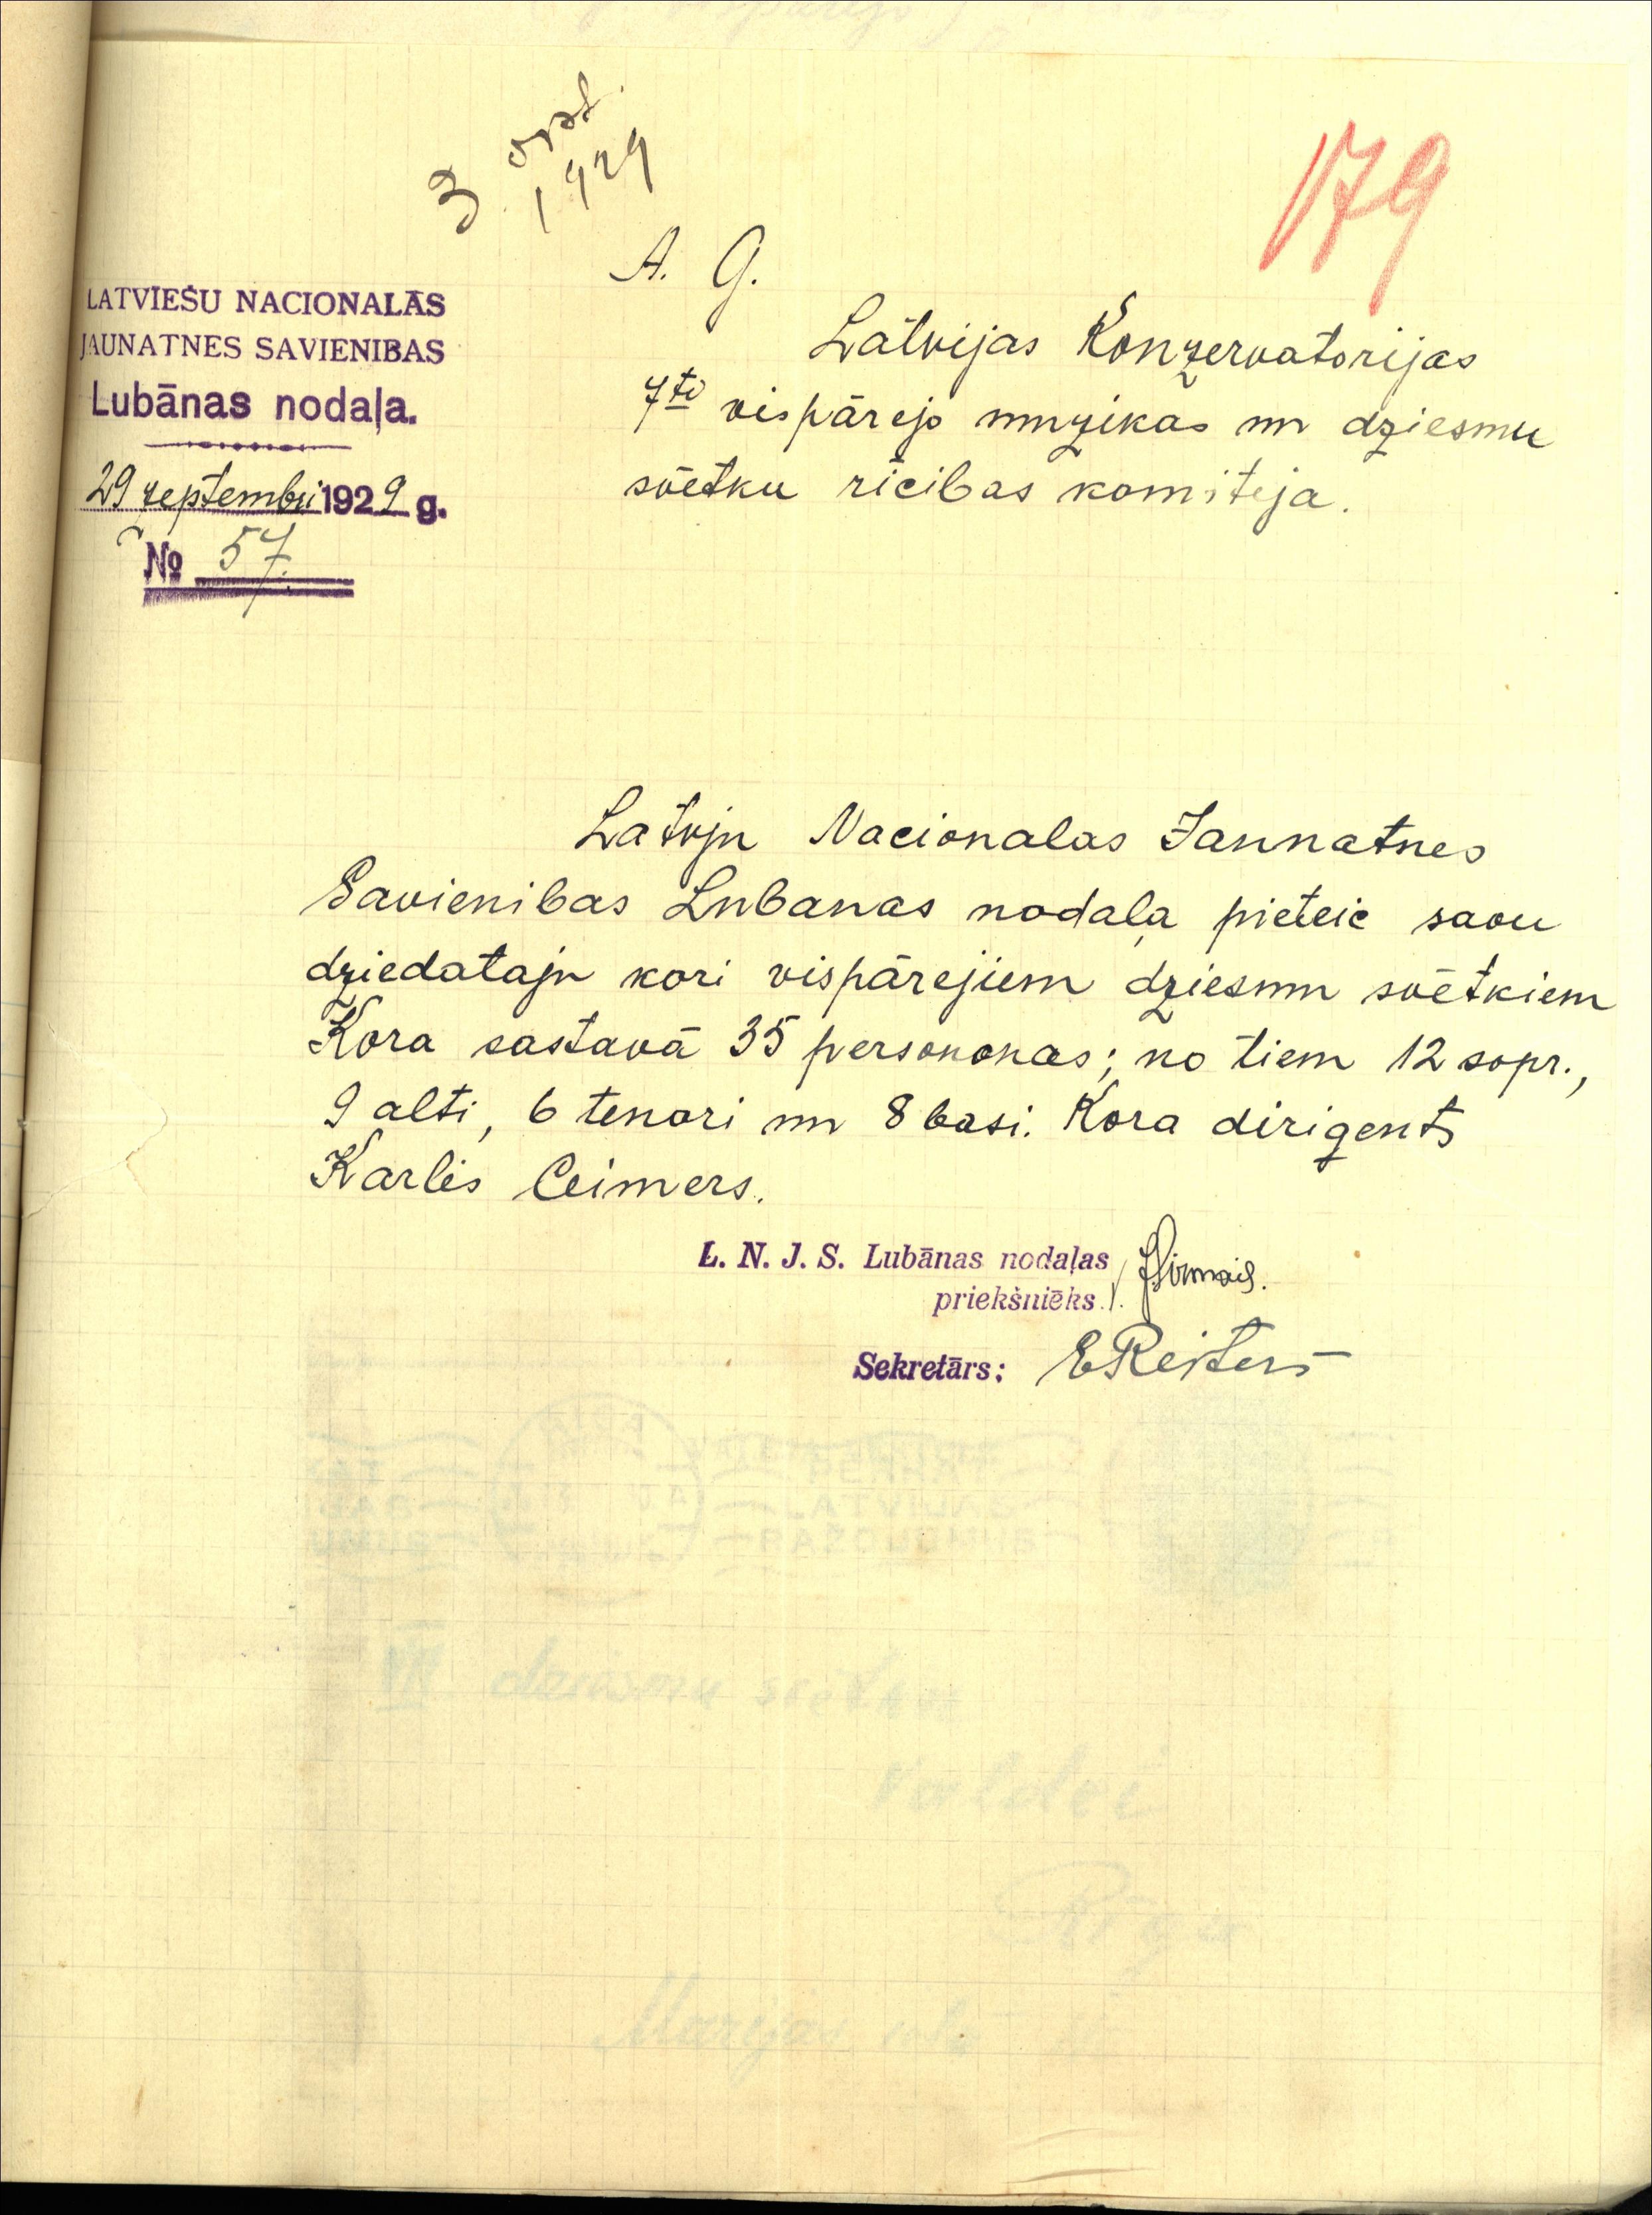 3. okt.
1929
179
A. G.
LATVIEŠU NACIONALĀS
JAUNATNES SAVIENIBAS
Lubānas nodaļa.
29 septembri 1929 g.
№ 57.
Latvijas Konzervatorijas
7to vispārejo muzikas un dziesmu
svētku ricibas komiteja.
Latvju Nacionalas Jaunatnes
Savienibas Lubanas nodaļa pieteic savu
dziedataju kori vispārejiem dziesmu svētkiem
Kora sastavā 35 persononas; no tiem 12 sopr.,
9 alti, 6 tenori un 8 basi. Kora dirigents
Karlis Ceimers.
L. N. J. S. Lubānas nodaļas
priekšniēks
Sekretārs: EReiters
VII dziesmu svētku
valdei
Rīgā
Marijas ielā